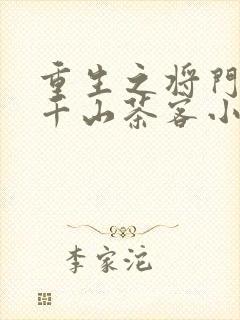 重生之将门
千山茶客小
李家沱